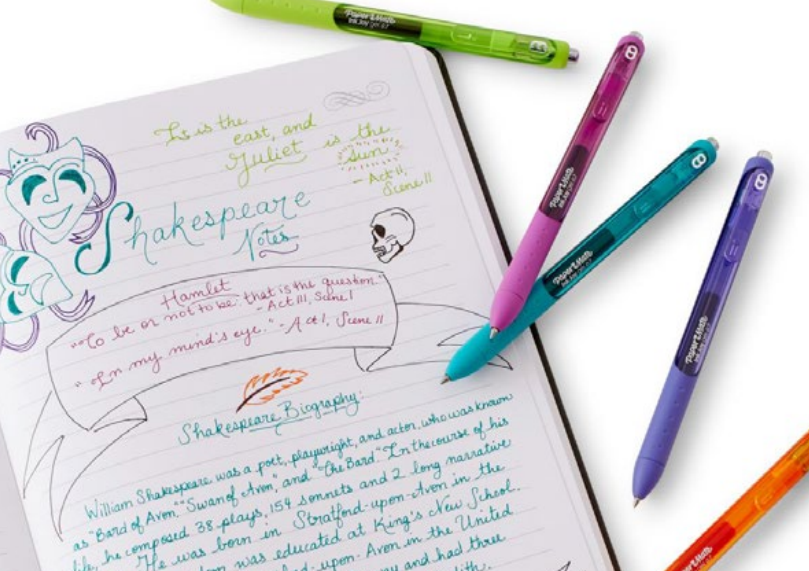 It is the
east, and
Juliet is the
Sun
- Act II,
Scene II
Shakespeare
Notes
Hamlet
"To be or not to be: that is the question."
- Act III, Scene I
"In my mind's eye." - Act I, Scene II
Shakespeare Biography:
William Shakespeare was a poet, playwright, and actor, who was known
as "Bard of Avon," "Swan of Avon," and "The Bard." In the course of his
life, he composed 38 plays, 154 sonnets and 2 long narrative
He was born in Stratford-upon-Avon in the
was educated at King's New School.
upon-Avon in the United
and had three
PaperMate
InkJoy Gel 0.7
PaperMate
InkJoy Gel 0.7
PaperMate
InkJoy Gel 0.7
PaperMate
InkJoy Gel 0.7
PaperMate